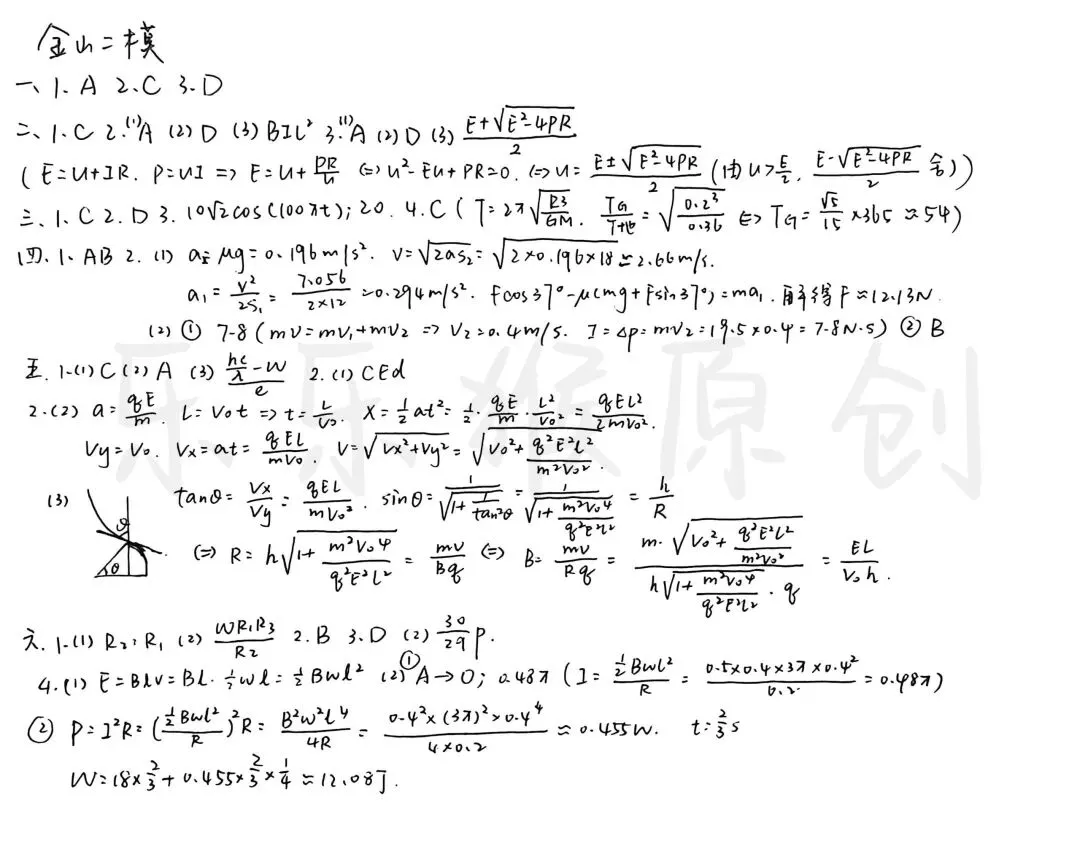 金山二模
一、1. A 2. C 3. D
二、1. C 2. (1) A (2) D (3) BIL² 3. (1) A (2) D (3) (E+√(E²-4PR))/2
(E=U+IR. P=UI => E=U+PR/U <=> U²-EU+PR=0. <=> U=(E±√(E²-4PR))/2 (由U>E/2, (E-√(E²-4PR))/2 舍))
三、1. C 2. D 3. 10√2cos(100πt); 20. 4. C (T=2π√(R³/GM). T_G/T地=√(0.2³/0.36) <=> T_G=√5/15×365≈54)
四、1. AB 2. (1) a₂=μg=0.196m/s². v=√(2as₂)=√(2×0.196×18)≈2.66m/s.
a₁=v²/2s₁=7.056/(2×12)≈0.294m/s². Fcos37°-μ(mg+Fsin37°)=ma₁. 解得F≈12.13N.
(2) ① 7.8 (mv=mv₁+mv₂ => v₂=0.4m/s. I=Δp=mv₂=19.5×0.4=7.8N·s) ② B
五、1.(1) C (2) A (3) (hc/λ-W)/e 2. (1) CEd
2.(2) a=qE/m. L=v₀t => t=L/v₀. x=½at²=½·qE/m·L²/v₀²=qEL²/2mv₀².
Vy=V₀. Vx=at=qEL/mv₀. V=√(Vx²+Vy²)=√(V₀²+q²E²L²/m²v₀²).
(3) tanθ=Vx/Vy=qEL/mv₀². sinθ=1/√(1+1/tan²θ)=1/√(1+m²v₀⁴/q²E²L²)=h/R
θ θ
<=> R=h√(1+m²v₀⁴/q²E²L²)=mv/Bq <=> B=mv/Rq=(m·√(v₀²+q²E²L²/m²v₀²))/(h√(1+m²v₀⁴/q²E²L²)·q)=EL/v₀h.
六、1.(1) R₂:R₁ (2) WR₁R₃/R₂ 2. B 3. D (2) 30/29 P.
4.(1) E=Blv=BL·½ωl=½Bωl² (2)① A→O; 0.48π (I=½Bωl²/R=(0.5×0.4×3π×0.4²)/0.2=0.48π)
② P=I²R=(½Bωl²/R)²R=B²ω²l⁴/4R=(0.4²×(3π)²×0.4⁴)/(4×0.2)≈0.455W. t=⅔s
W=18×⅔+0.455×⅔×¼≈12.08J.
乐乐猴原创